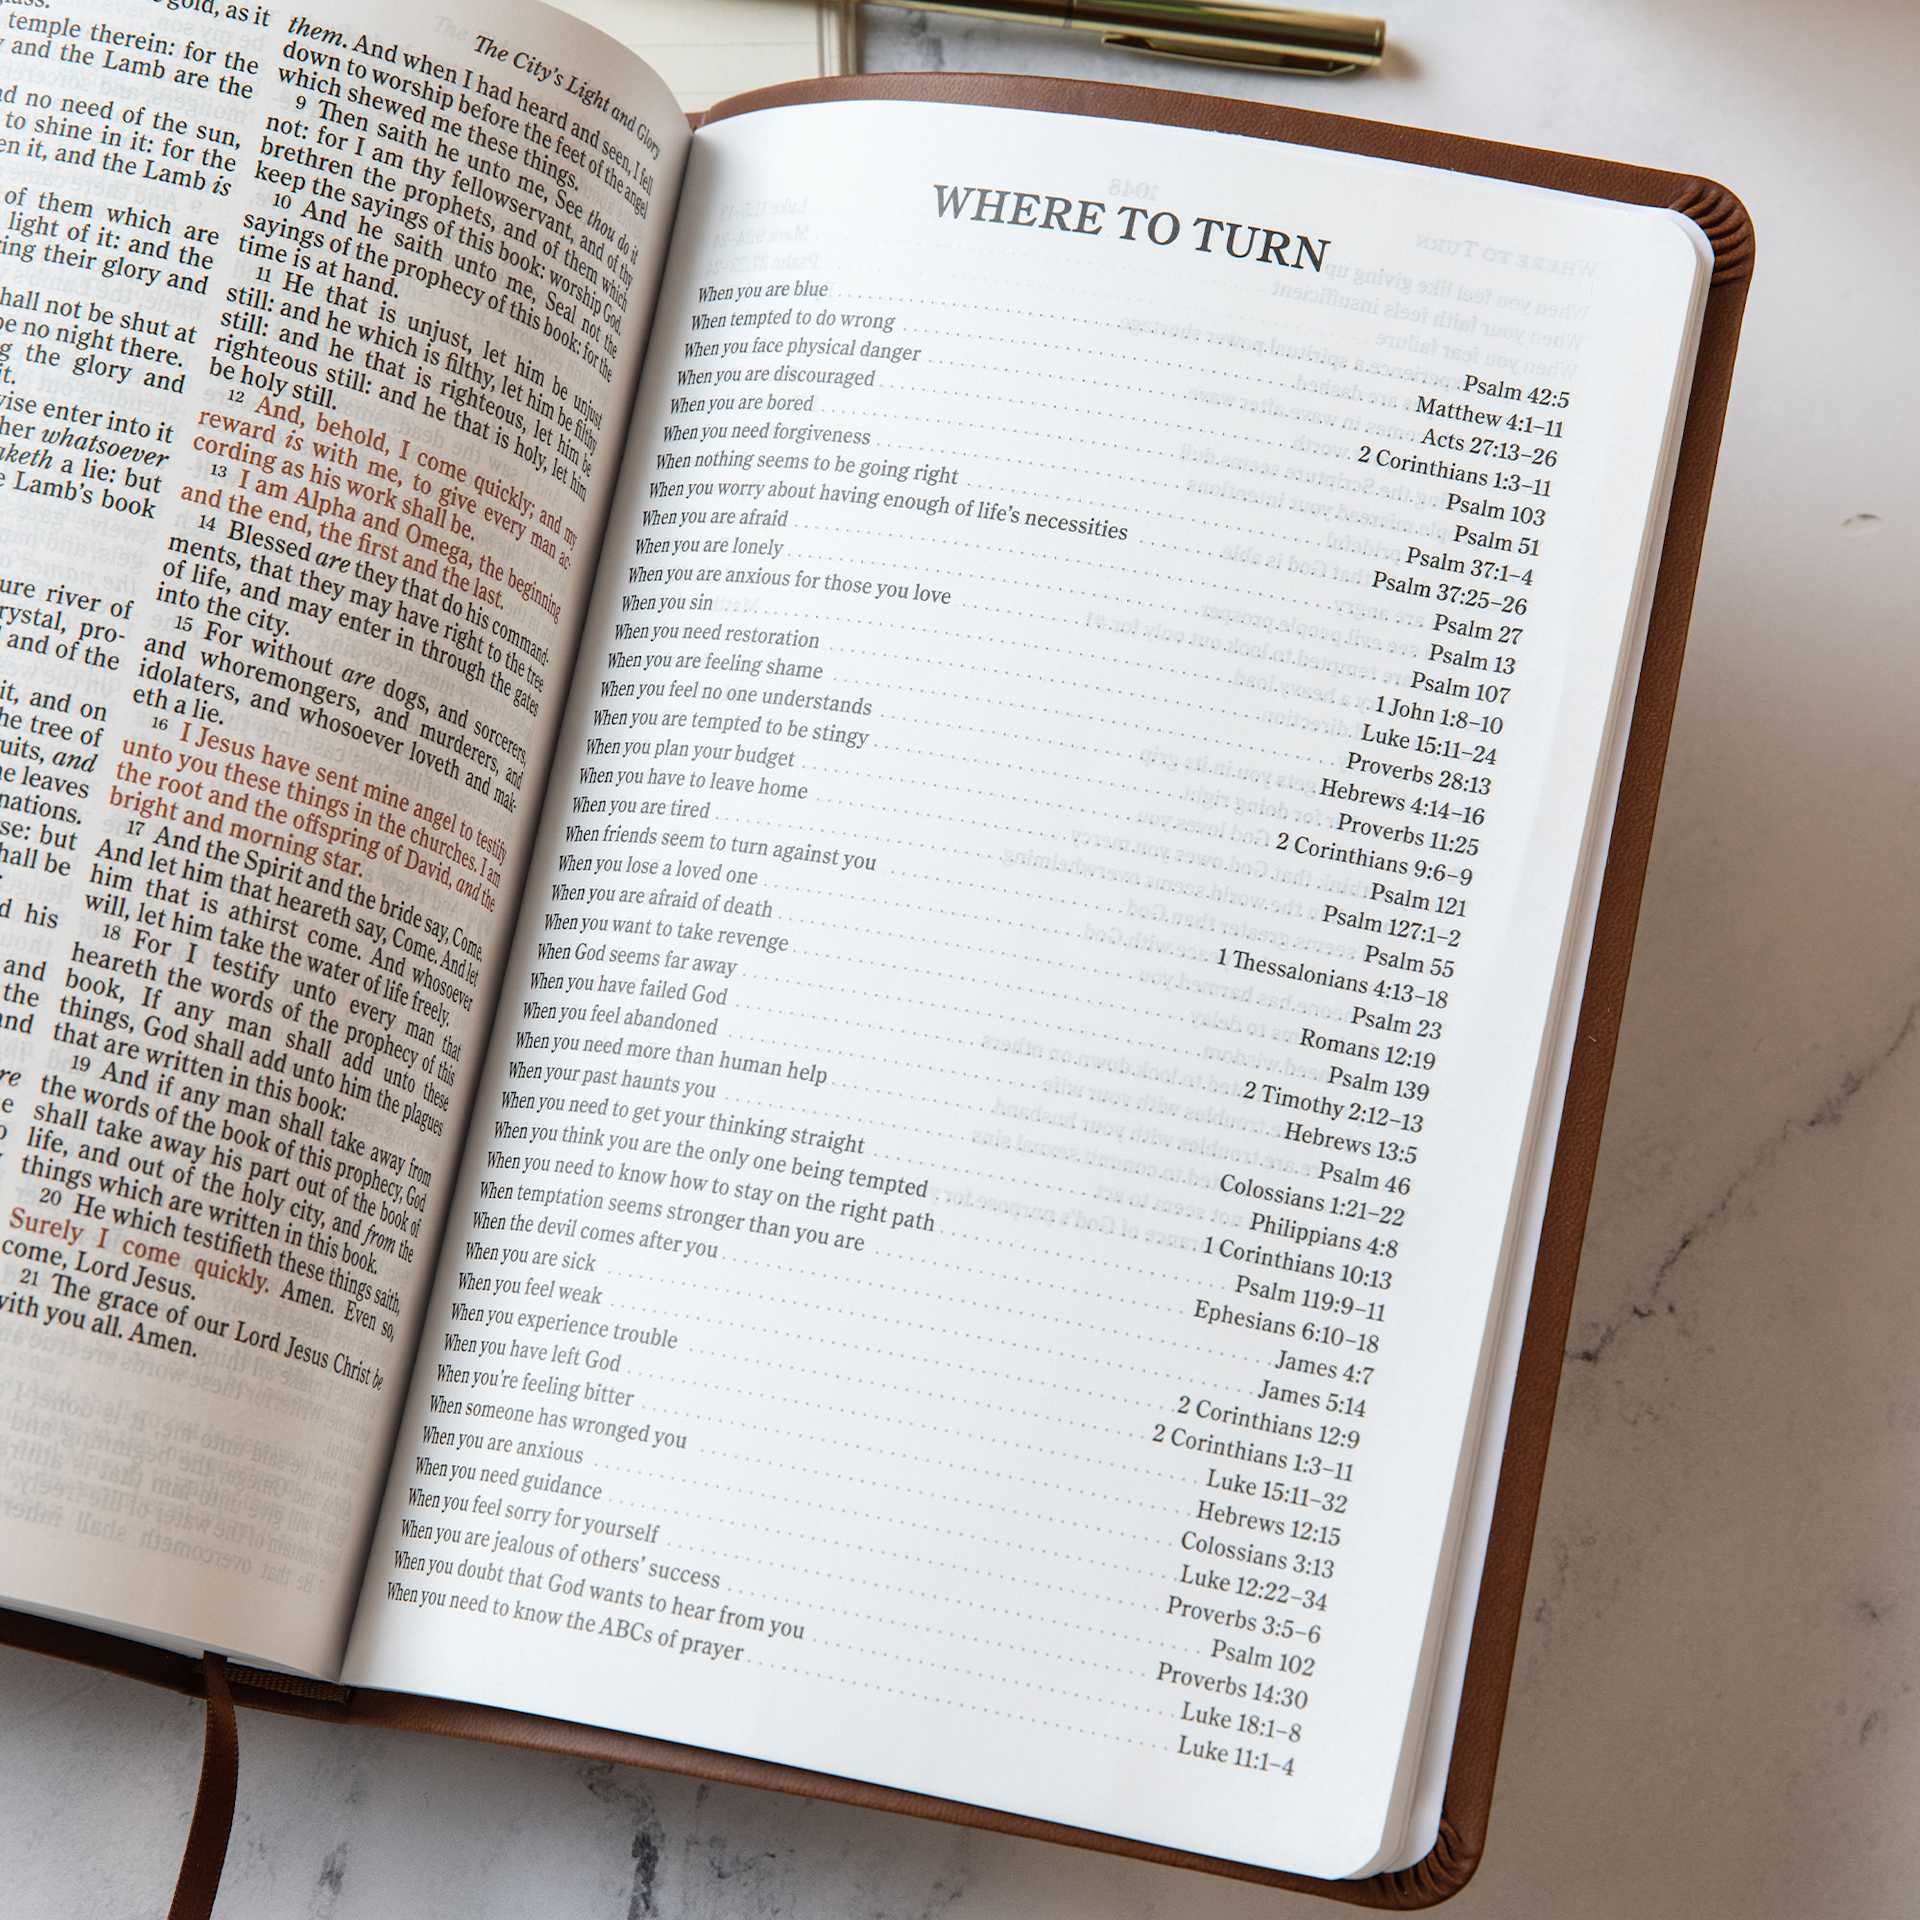 The City's Light and Glory
gold, as it
temple therein: for the
and the Lamb are the
no need of the sun,
to shine in it: for the
it, and the Lamb is
of them which are
light of it: and the
their glory and
shall not be shut at
be no night there.
the glory and
it.
enter into it
whatsoever
a lie: but
Lamb's book
river of
pro-
and of the
it, and on
tree of
and
leaves
nations.
but
shall be
his
and
the
and
them. And when I had heard and seen, I fell
down to worship before the feet of the angel
which shewed me these things.
9 Then saith he unto me, See thou do it
not: for I am thy fellowservant, and of thy
brethren the prophets, and of them which
keep the sayings of this book: worship God.
10 And he saith unto me, Seal not the
sayings of the prophecy of this book: for the
time is at hand.
11 He that is unjust, let him be unjust
still: and he which is filthy, let him be filthy
still: and he that is righteous, let him be
righteous still: and he that is holy, let him
be holy still.
12 And, behold, I come quickly; and my
reward is with me, to give every man ac-
cording as his work shall be.
13 I am Alpha and Omega, the beginning
and the end, the first and the last.
14 Blessed are they that do his command-
ments, that they may have right to the tree
of life, and may enter in through the gates
into the city.
15 For without are dogs, and sorcerers,
and whoremongers, and murderers, and
idolaters, and whosoever loveth and mak-
eth a lie.
16 I Jesus have sent mine angel to testify
unto you these things in the churches. I am
the root and the offspring of David, and the
bright and morning star.
17 And the Spirit and the bride say, Come.
And let him that heareth say, Come. And let
him that is athirst come. And whosoever
will, let him take the water of life freely.
18 For I testify unto every man that
heareth the words of the prophecy of this
book, If any man shall add unto these
things, God shall add unto him the plagues
that are written in this book:
19 And if any man shall take away from
the words of the book of this prophecy, God
shall take away his part out of the book of
life, and out of the holy city, and from the
things which are written in this book.
20 He which testifieth these things saith,
Surely I come quickly. Amen. Even so,
come, Lord Jesus.
21 The grace of our Lord Jesus Christ be
with you all. Amen.
WHERE TO TURN
When you are blue Psalm 42:5
When tempted to do wrong Matthew 4:1–11
When you face physical danger Acts 27:13–26
When you are discouraged 2 Corinthians 1:3–11
When you are bored Psalm 103
When you need forgiveness Psalm 51
When nothing seems to be going right Psalm 37:1–4
When you worry about having enough of life's necessities Psalm 37:25–26
When you are afraid Psalm 27
When you are lonely Psalm 13
When you are anxious for those you love Psalm 107
When you sin 1 John 1:8–10
When you need restoration Luke 15:11–24
When you are feeling shame Proverbs 28:13
When you feel no one understands Hebrews 4:14–16
When you are tempted to be stingy Proverbs 11:25
When you plan your budget 2 Corinthians 9:6–9
When you have to leave home Psalm 121
When you are tired Psalm 127:1–2
When friends seem to turn against you Psalm 55
When you lose a loved one 1 Thessalonians 4:13–18
When you are afraid of death Psalm 23
When you want to take revenge Romans 12:19
When God seems far away Psalm 139
When you have failed God 2 Timothy 2:12–13
When you feel abandoned Hebrews 13:5
When you need more than human help Psalm 46
When your past haunts you Colossians 1:21–22
When you need to get your thinking straight Philippians 4:8
When you think you are the only one being tempted 1 Corinthians 10:13
When you need to know how to stay on the right path Psalm 119:9–11
When temptation seems stronger than you are Ephesians 6:10–18
When the devil comes after you James 4:7
When you are sick James 5:14
When you feel weak 2 Corinthians 12:9
When you experience trouble 2 Corinthians 1:3–11
When you have left God Luke 15:11–32
When you're feeling bitter Hebrews 12:15
When someone has wronged you Colossians 3:13
When you are anxious Luke 12:22–34
When you need guidance Proverbs 3:5–6
When you feel sorry for yourself Psalm 102
When you are jealous of others' success Proverbs 14:30
When you doubt that God wants to hear from you Luke 18:1–8
When you need to know the ABCs of prayer Luke 11:1–4